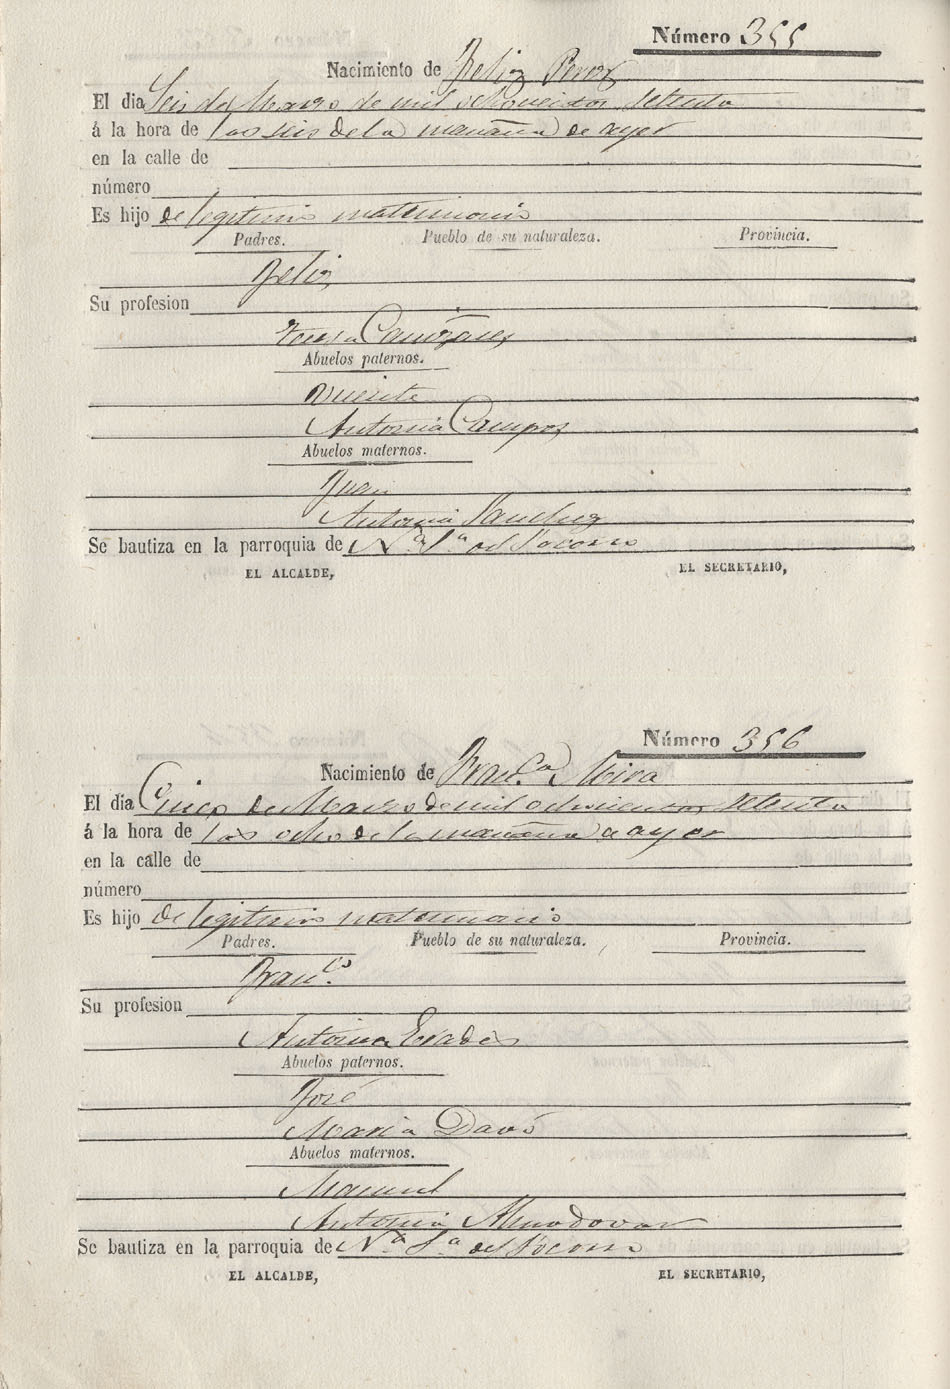 Número 355
Nacimiento de Felix Perez
El dia Seis de Marzo de mil ochocientos setenta
á la hora de las seis de la mañana de ayer
en la calle de
número
Es hijo de legitimo matrimonio
Padres. Pueblo de su naturaleza. Provincia.
Felix
Su profesion
Teresa Cañizares
Abuelos paternos.
Vicente
Antonia Campos
Abuelos maternos.
Juan
Antonia Sanchez
Se bautiza en la parroquia de Nª Sª del Socorro
EL ALCALDE, EL SECRETARIO,
Número 356
Nacimiento de Franᶜᵃ Mira
El dia Cinco de Marzo de mil ochocientos setenta
á la hora de las ocho de la mañana a ayer
en la calle de
número
Es hijo de legitimo matrimonio
Padres. Pueblo de su naturaleza. Provincia.
Franᶜᵒ
Su profesion
Antonia
Abuelos paternos.
José
Maria Davó
Abuelos maternos.
Manuel
Antonia Almodovar
Se bautiza en la parroquia de Nª Sª del Socorro
EL ALCALDE, EL SECRETARIO,